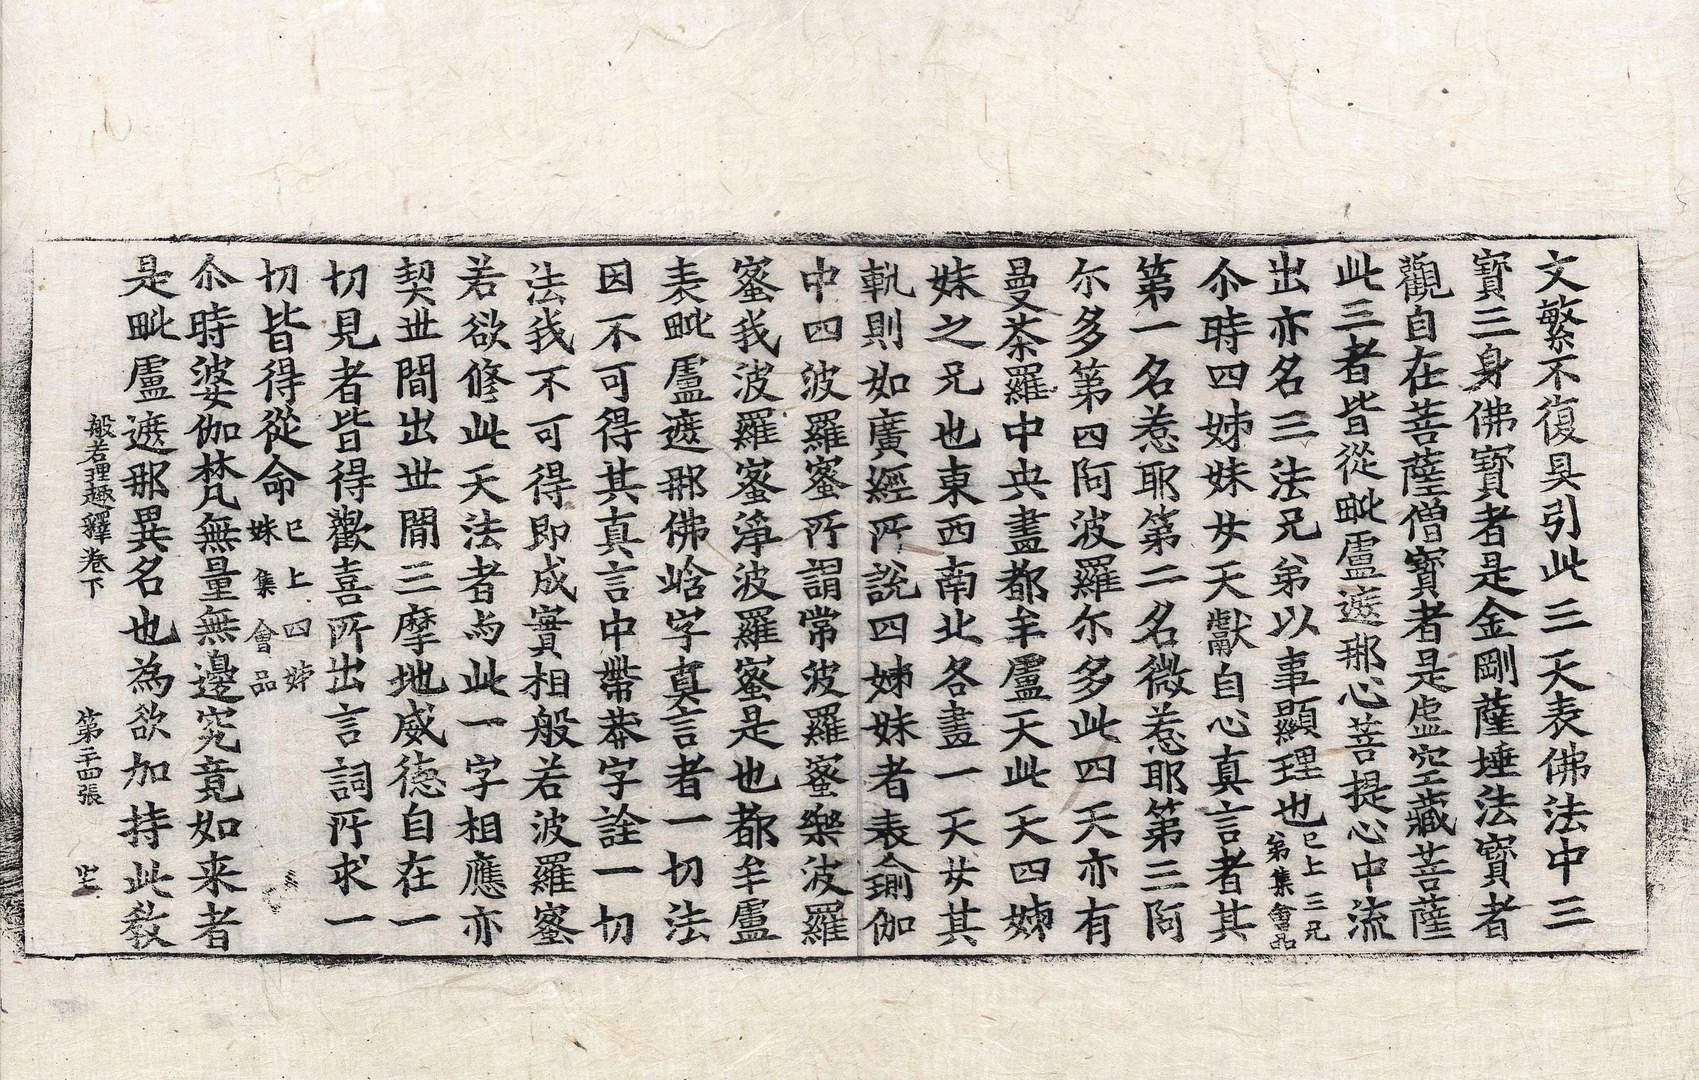 文繁不復具引此三天表佛法中三
寶三身佛寶者是金剛薩埵法寶者
觀自在菩薩僧寶者是虛空藏菩薩
此三者皆從毗盧遮那心菩提心中流
出亦名三法兄弟以事顯理也已上三兄弟集會品
尒時四姊妹女天獻自心真言者其
第一名惹耶第二名微惹耶第三阿
尔多第四阿波羅尔多此四天亦有
曼茶羅中央畫都牟盧天此天四姊
妹之兄也東西南北各畫一天女其
軌則如廣經所說四姊妹者表瑜伽
中四波羅蜜所謂常波羅蜜樂波羅
蜜我波羅蜜淨波羅蜜是也都牟盧
表毗盧遮那佛㖤字真言者一切法
因不可得其真言中帶莽字詮一切
法我不可得即成實相般若波羅蜜
若欲修此天法者与此一字相應亦
契世間出世間三摩地威德自在一
切見者皆得歡喜所出言詞所求一
切皆得從命已上四姊妹集會品
尒時婆伽梵無量無邊究竟如来者
是毗盧遮那異名也為欲加持此教
般若理趣釋卷下 第二十四張